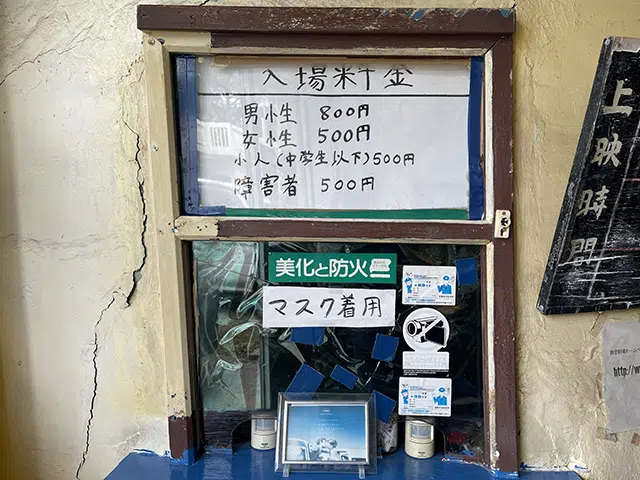 入場料金
男性 800円
女性 500円
小人(中学生以下)500円
障害者 500円
上映時間
美化と防火
マスク着用
http://w